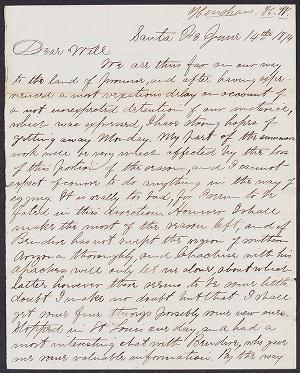 Henshaw, H. W.
Santa Fe June 14th 1874
Dear Will
We are thus far on our way
to the land of promise, and after having expe-
rienced a most vexatious delay on account of
a not unexpected detention of our material,
which was expressed, I have strong hopes of
getting away Monday. My part of the summers
work will be very much affected by the loss
of this portion of the season, and I cannot
expect of course to do anything in the way of
eggs. It is really too bad, for I seem to be
fated in this direction. However I shall
make the most of the season left, and if
Bendire has not swept the region of southern
Arizona thoroughly, and Cachise with his
Apaches will only let us alone, about which
latter however there seems to be some little
doubt I make no doubt but that I shall
get some fine things possibly some new ones.
Stopped in St Louis one day, and had a
most interesting chat with Bendire, who gave
me some valuable information. By the way